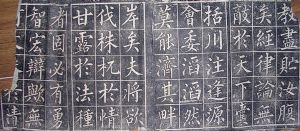 教盡貯汝腹
矣經律論無
敵於天下囊
括川注逢源
會委滔滔然
莫能濟其畔
岸矣夫將欲
伐株杌於情
甘露於法種
者固必有勇
智宏辯歟
於清